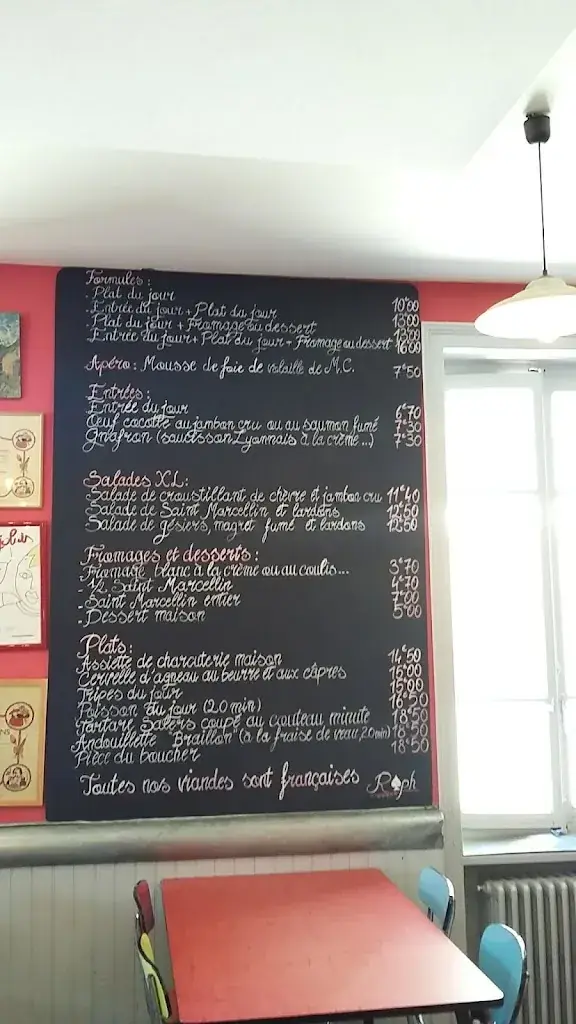 Formules :
- Plat du jour 10€00
- Entrée du jour + Plat du jour 13€00
- Plat du jour + Fromage ou dessert 13€00
- Entrée du jour + Plat du jour + Fromage ou dessert 16€00
Apéro : Mousse de foie de volaille de M.C. 7€50
Entrées :
Entrée du jour 6€70
Œuf cocotte au jambon cru ou au saumon fumé 7€30
Gnafron (saucisson Lyonnais à la crème...) 7€30
Salades XL :
Salade de croustillant de chèvre et jambon cru 11€40
Salade de Saint Marcellin et lardons 12€50
Salade de gésiers, magret fumé et lardons 12€50
Fromages et desserts :
- Fromage blanc à la crème ou au coulis... 3€70
- 1/2 Saint Marcellin 4€70
- Saint Marcellin entier 7€00
- Dessert maison 5€00
Plats :
Assiette de charcuterie maison 14€50
Cervelle d'agneau au beurre et aux câpres 15€00
Tripes du jour 15€00
Poisson du jour (20 min) 16€50
Tartare Salers coupé au couteau minute 18€50
Andouillette "Braillon" (à la fraise de veau, 20 min) 18€50
Pièce du boucher 18€50
Toutes nos viandes sont françaises Raph